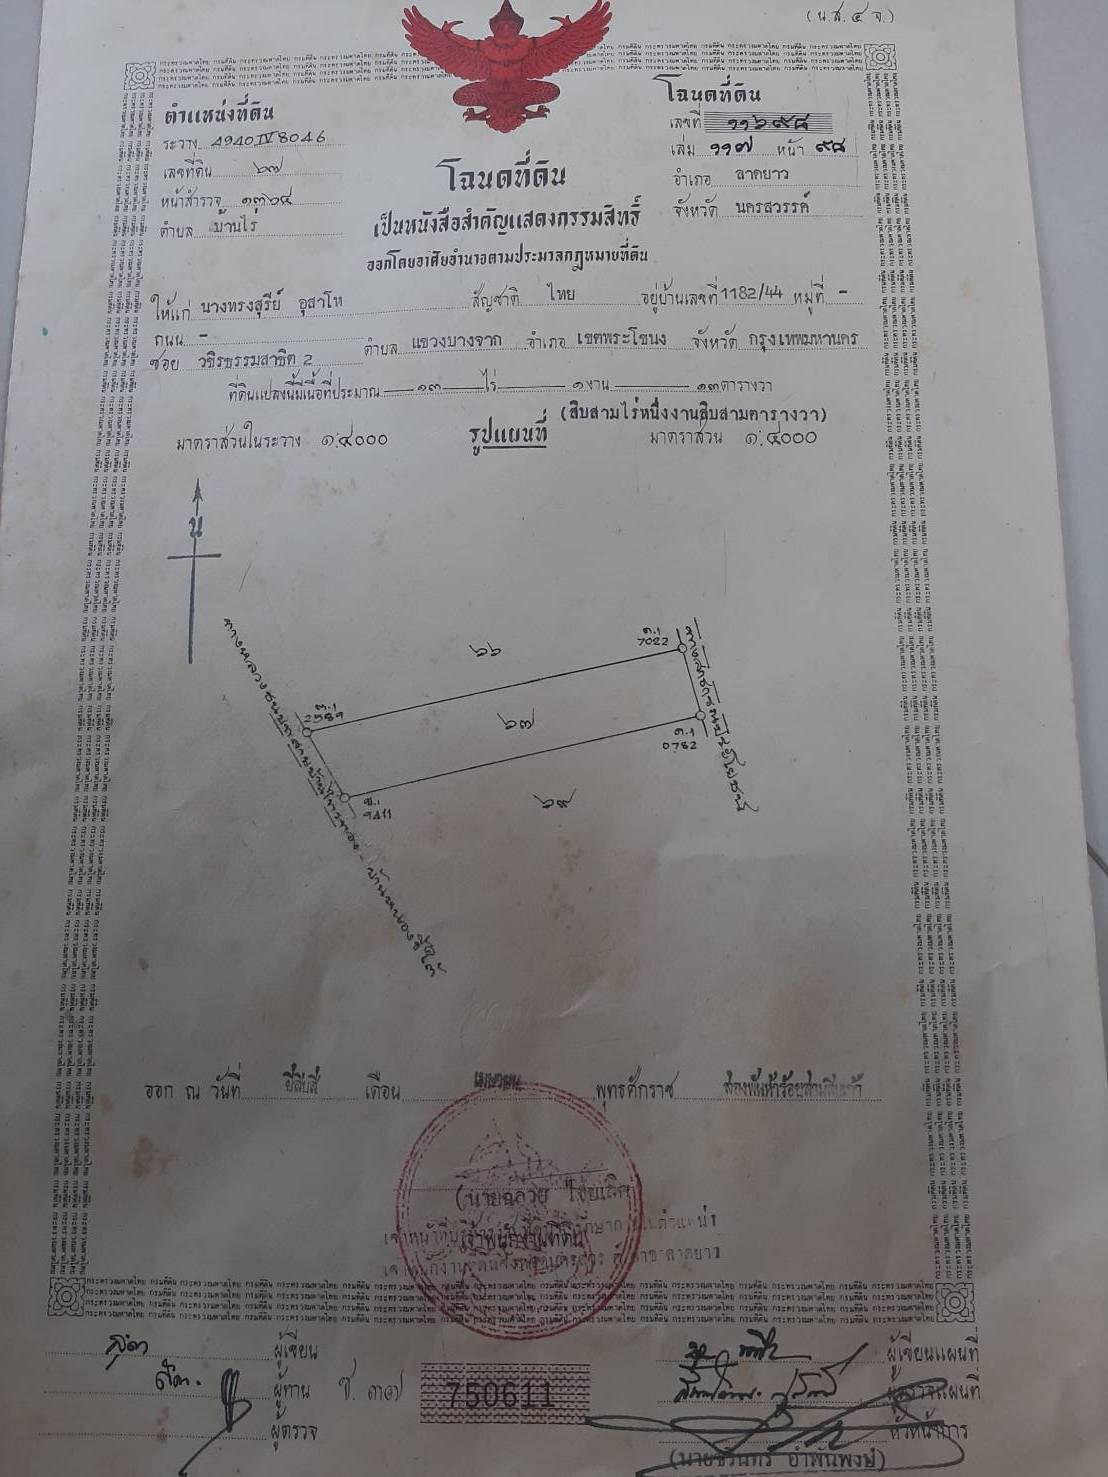 (น.ส.๔ จ.)
ตำแหน่งที่ดิน
ระวาง 4940 IV 8046
เลขที่ดิน ๖๗
หน้าสำรวจ ๑๓๖๔
ตำบล บ้านไร่
โฉนดที่ดิน
เลขที่ ๑๑๖๙๘
เล่ม ๑๑๗ หน้า ๙๘
อำเภอ ลาดยาว
จังหวัด นครสวรรค์
โฉนดที่ดิน
เป็นหนังสือสำคัญแสดงกรรมสิทธิ์
ออกโดยอาศัยอำนาจตามประมวลกฎหมายที่ดิน
ให้แก่ นางทรงสุรีย์ อุสาโห สัญชาติ ไทย อยู่บ้านเลขที่ 1182/44 หมู่ที่ -
ถนน -
ซอย วชิรธรรมสาธิต 2 ตำบล แขวงบางจาก อำเภอ เขตพระโขนง จังหวัด กรุงเทพมหานคร
ที่ดินแปลงนี้มีเนื้อที่ประมาณ ๑๓ ไร่ ๑ งาน ๑๓ ตารางวา
(สิบสามไร่หนึ่งงานสิบสามตารางวา)
มาตราส่วนในระวาง ๑:๔๐๐๐ รูปแผนที่ มาตราส่วน ๑:๔๐๐๐
น
๖๖
7022
๖๗
0782
๖๙
9411
ออก ณ วันที่ ยี่สิบสี่ เดือน เมษายน พุทธศักราช สองพันห้าร้อยสามสิบเก้า
เจ้าพนักงานที่ดิน
ผู้เขียน
ผู้ทาน
ผู้ตรวจ
ช. ๓๗
750611
ผู้เขียนแผนที่
ผู้ตรวจแผนที่
หัวหน้าการ
(นายชรินทร์ อำพันพงษ์)